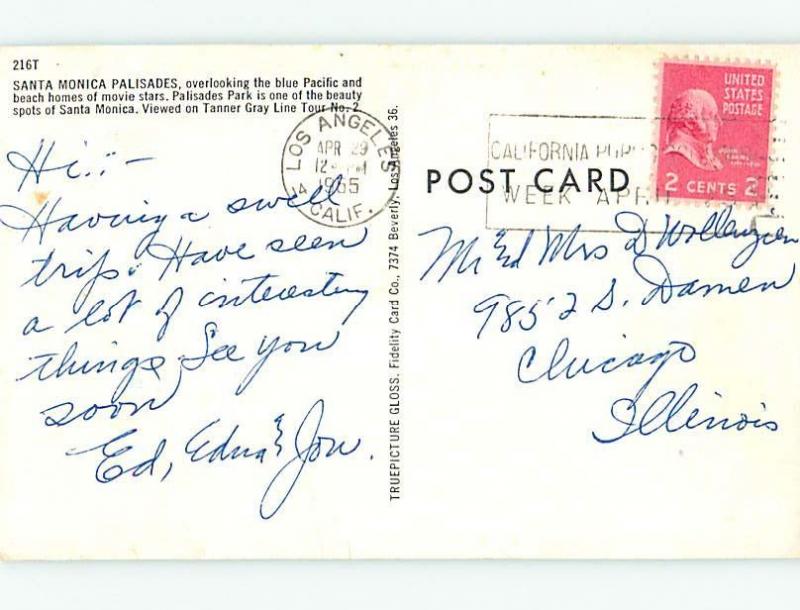 216T
SANTA MONICA PALISADES, overlooking the blue Pacific and
beach homes of movie stars. Palisades Park is one of the beauty
spots of Santa Monica. Viewed on Tanner Gray Line Tour No. 2
Hi..-
Having a swell
trip. Have seen
a lot of interesting
things. See you
soon
Ed, Edna &
TRUEPICTURE GLOSS. Fidelity Card Co., 7374 Beverly, Los Angeles 36.
LOS ANGELES
APR 29
1955
CALIF.
CALIFORNIA
WEEK
POST CARD
UNITED
STATES
POSTAGE
2 CENTS 2
Mr & Mrs D
9852 S. Damen
Chicago
Illinois